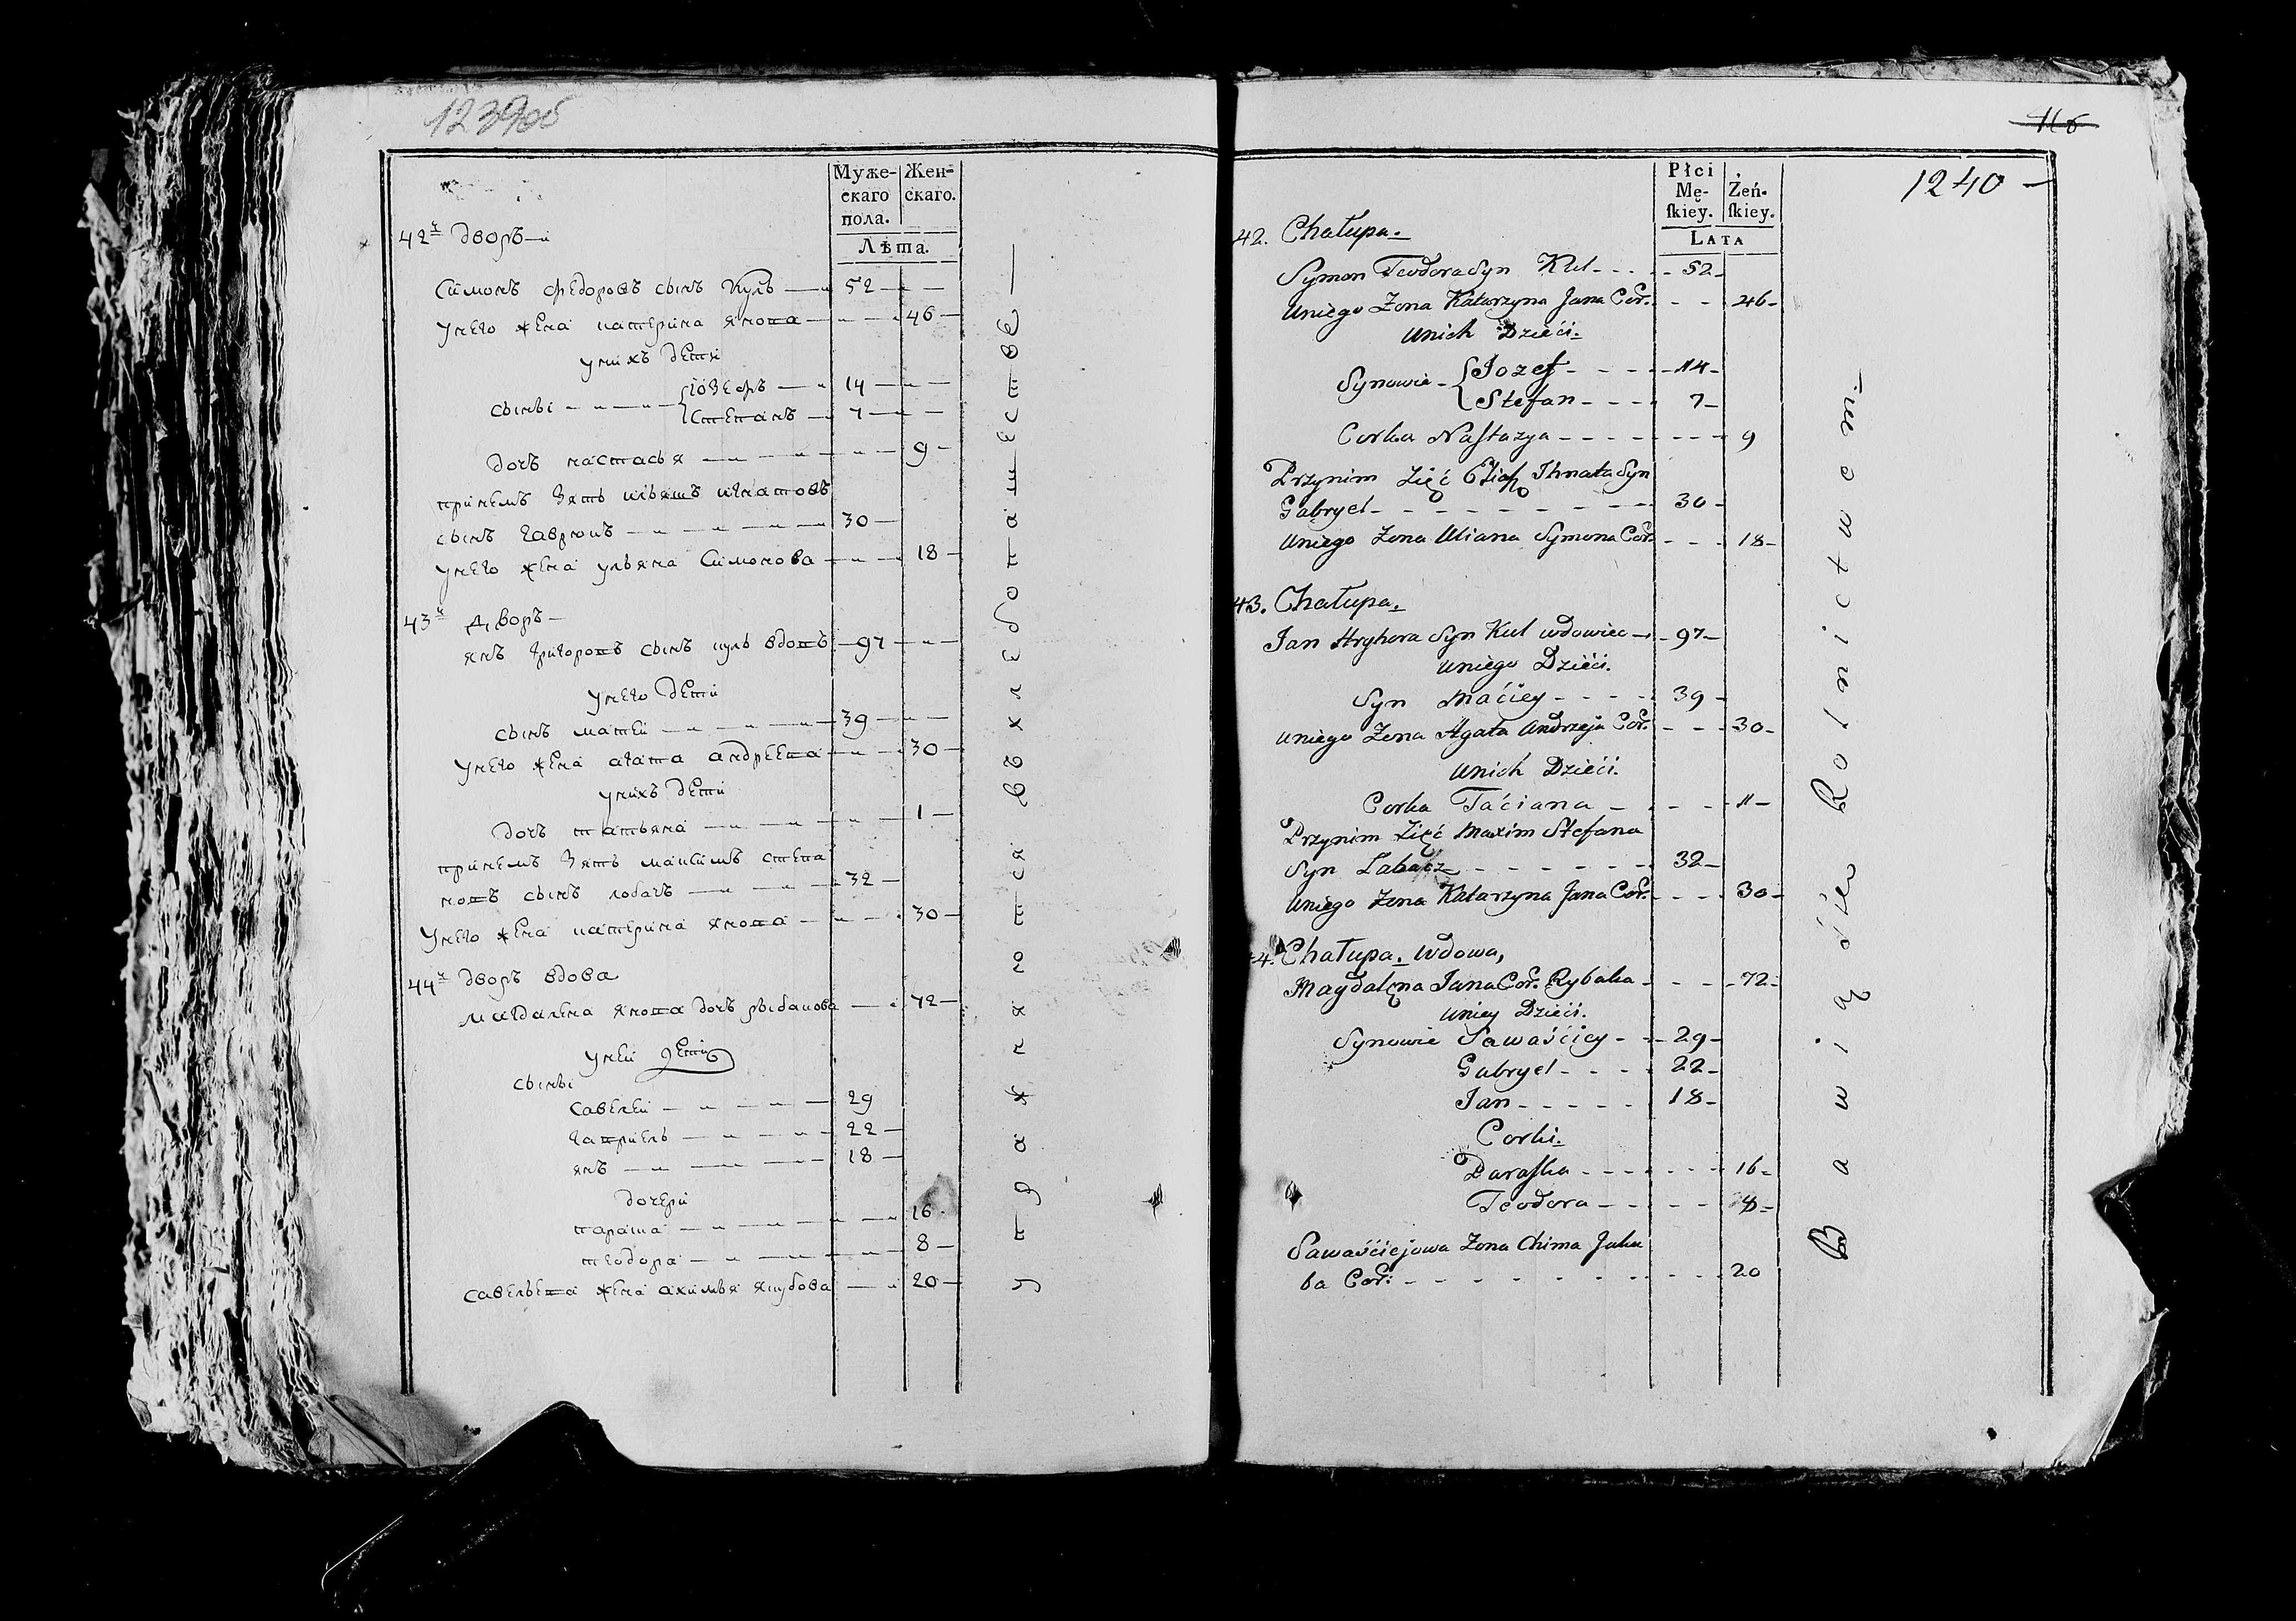 1239об
Муже-
скаго
пола.
Жен-
скаго.
Лѣта.
42й дворъ
Симонъ федоровъ сынъ Куль 52
унего жена катерина янова 46
унихъ дети
сыны
{юзефъ 14
степанъ 7
дочъ настасья 9
принемъ зять ильяшъ игнатовъ
сынъ гаврюкъ 30
унего жена ульяна Симонова 18
43й дворъ
янъ григоровъ сынъ куль вдовъ 97
унего дети
сынъ матей 39
унего жена агата андреева 30
унихъ дети
дочъ татьяна 1
принемъ зять максимъ степа
новъ сынъ лобачъ 32
унего жена катерина янова 30
44й дворъ вдова
магдалена янова дочъ рыбакова 72
уней дети
сыны
савелей 29
гавриель 22
янъ 18
дочери
параша 16
теодора 8
савельева жена ахимья якубова 20
упражняются въ хлебопашестве
116
1240
Płci
Mę-
ſkiey.
Żeń-
ſkiey.
Lata
42. Chałupa.
Symon Teodora Syn Kul 52
Uniego Żona Katarzyna Jana Cor. 46
Unich Dzieći.
Synowie
{Jozef 14
Stefan 7
Corka Naſtazya 9
Przynim Zięć Ihnata Syn
Gabryel 30
Uniego Zona Uliana Symona Cor. 18
43. Chałupa.
Jan Hryhora Syn Kul wdowiec 97
Uniego Dzieći.
Syn Maćiey 39
Uniego Zona Agata Andrzeja Cor. 30
Unich Dzieći.
Corka Taćiana 1
Przynim Zięć Maxim Stefana
Syn Łabacz 32
Uniego Zona Katarzyna Jana Cor. 30
44. Chałupa. Wdowa,
Magdalęna Jana Cor. Rybaka 72
Uniey Dzieći.
Synowie Sawaśćiey 29
Gabryel 22
Jan 18
Corki.
Paraſka 16
Teodora 8
Sawaśćiejowa Zona Chima Jaku
ba Cor: 20
Bawią śie Rolnictwem